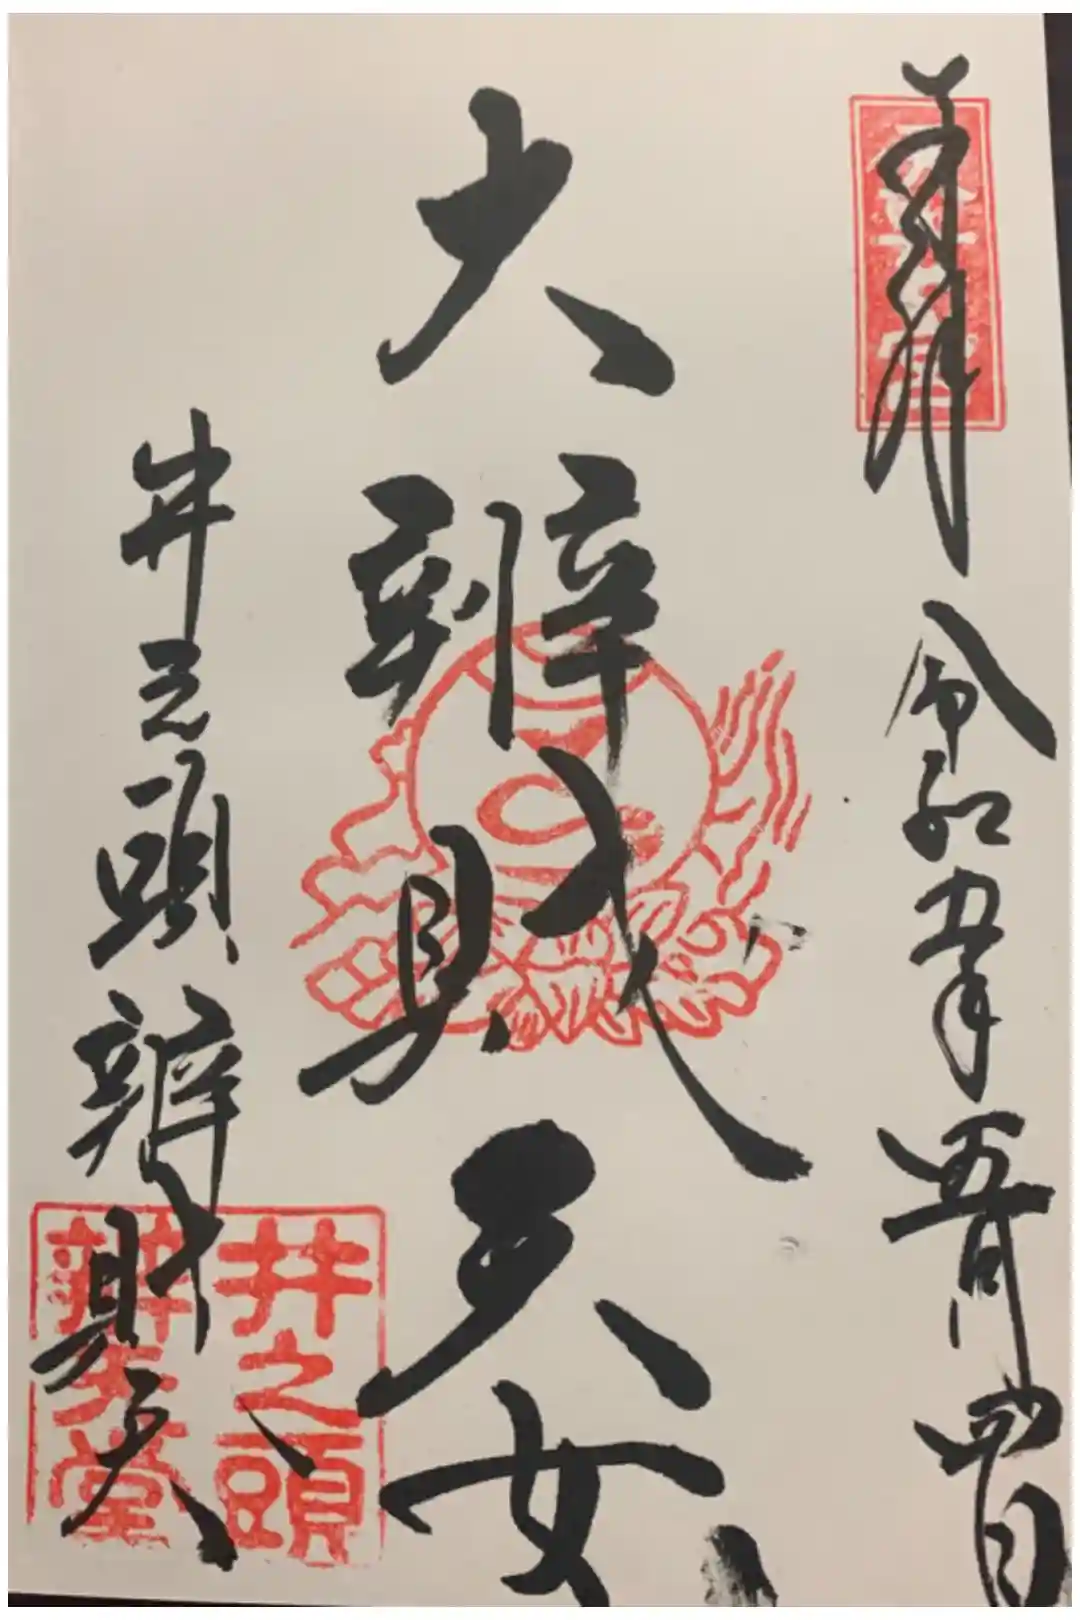 奉拝 令和五年五月四日
大辨財天女
井之頭辨財天
井之頭
辨天堂